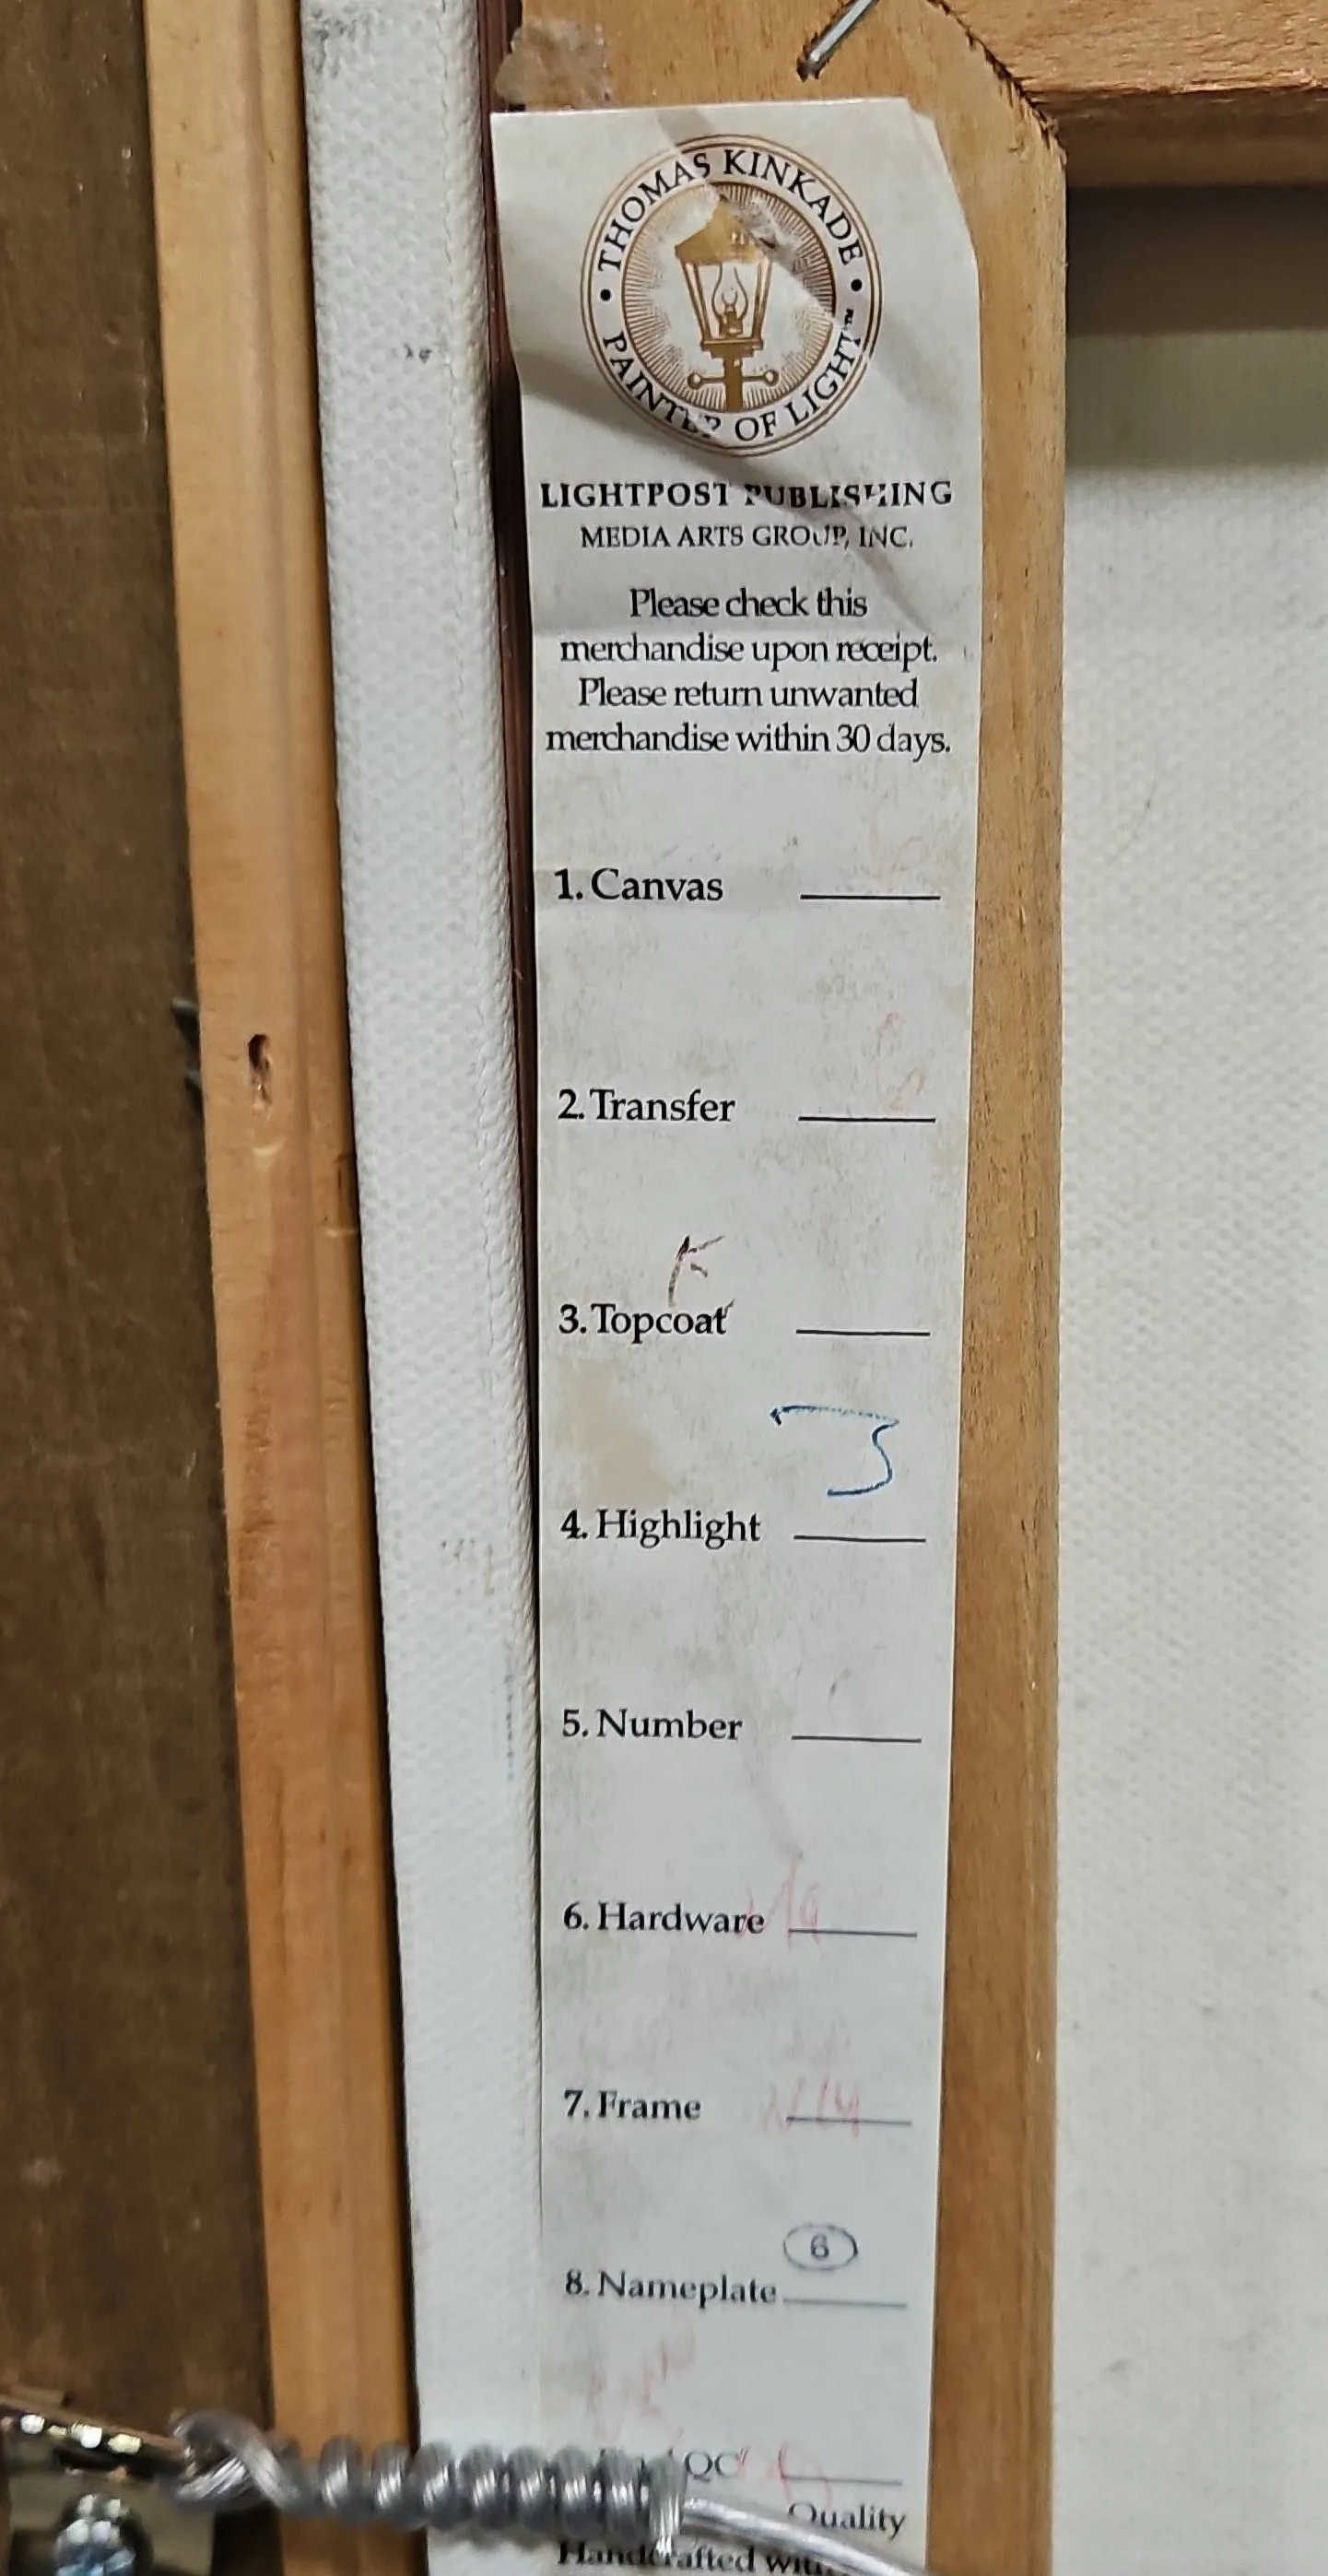 THOMAS KINKADE
PAINTER OF LIGHT™
LIGHTPOST PUBLISHING
MEDIA ARTS GROUP, INC.
Please check this
merchandise upon receipt.
Please return unwanted
merchandise within 30 days.
1. Canvas
2. Transfer
3. Topcoat
4. Highlight
5. Number
6. Hardware
7. Frame
6
8. Nameplate
QC
Quality
Handcrafted with